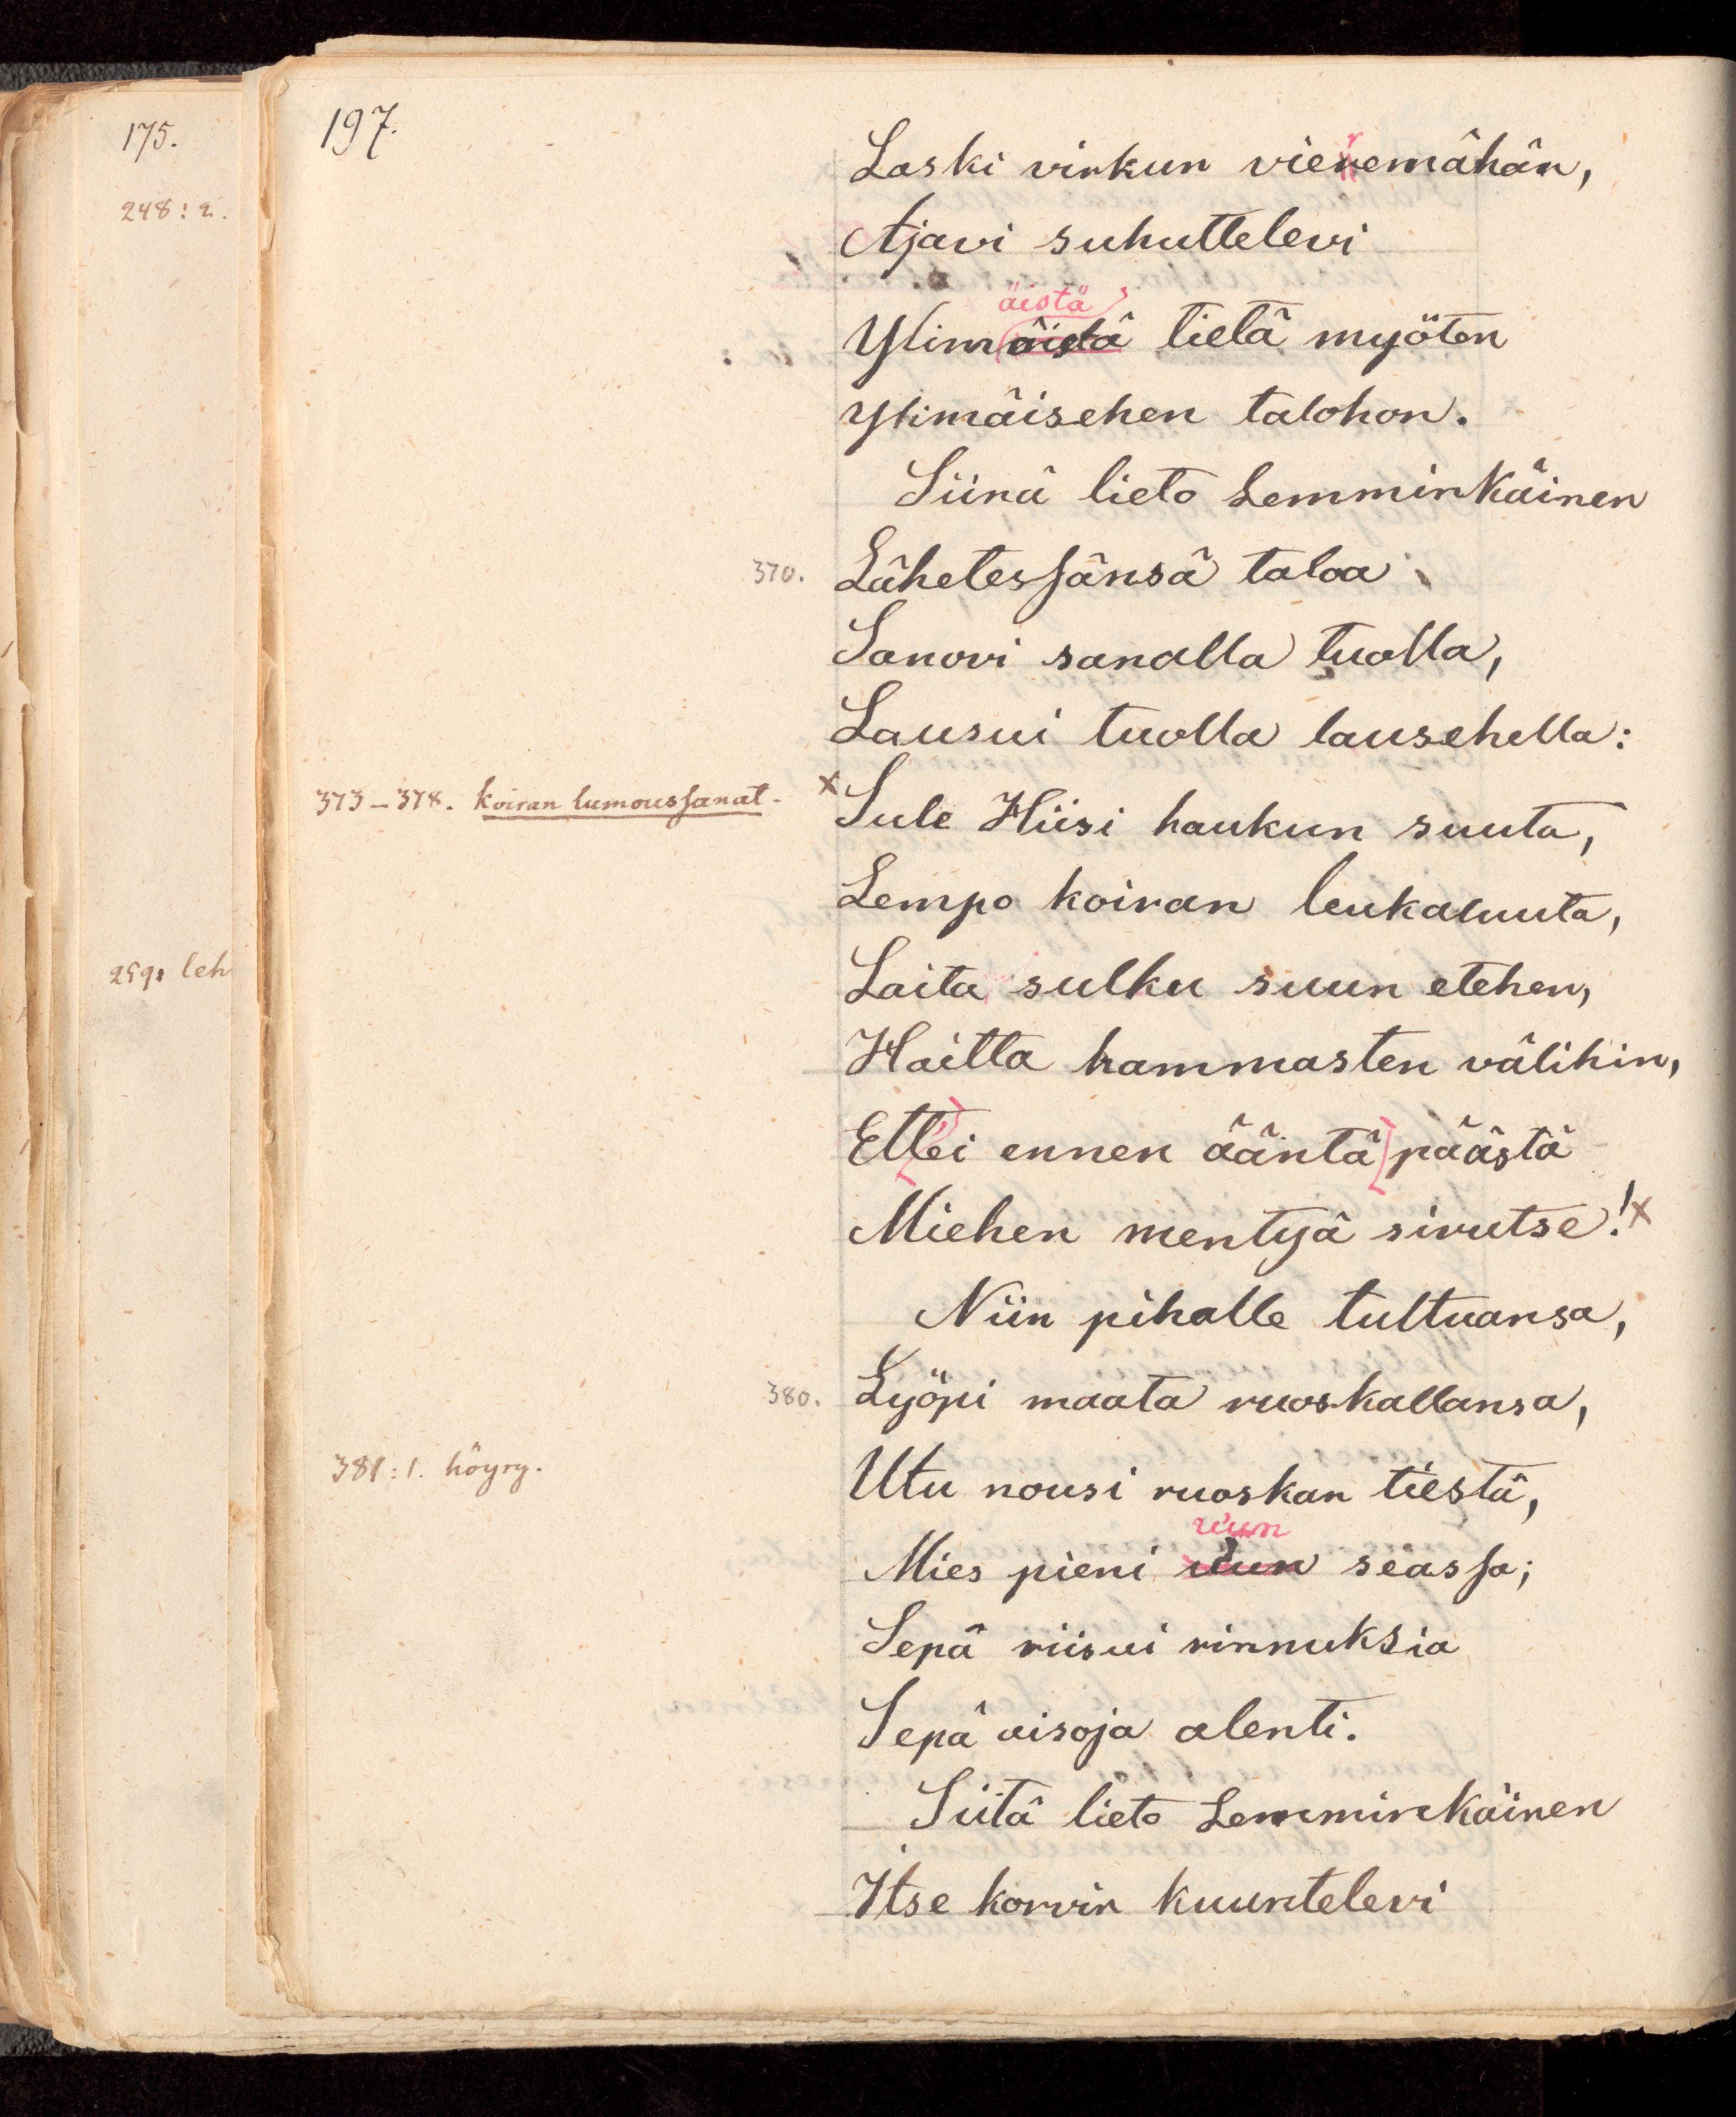 175.
248: 2.
259: leh
197.
Laski virkun vieremähän,
Ajavi suhuttelevi
äistä
Ylimäistä tietä myöten
Ylimäisehen talohon.
Siinä lieto Lemminkäinen
370. Lähetessänsä taloa
Sanovi sanalla tuolla,
Lausui tuolla lausehella:
373–378. Koiran lumoussanat.
× Sule Hiisi haukun suuta,
Lempo koiran leukaluuta,
Laita sulku suun etehen,
Haitta hammasten välihin,
Ettei ennen ääntä päästä
Miehen mentyä sivutse! ×
Niin pihalle tultuansa,
380. Lyöpi maata ruoskallansa,
381: 1. höyry.
Utu nousi ruoskan tiestä,
uun
Mies pieni uun seassa;
Sepä riisui rinnuksia
Sepä aisoja alenti.
Siitä lieto Lemminkäinen
Itse korvin kuuntelevi